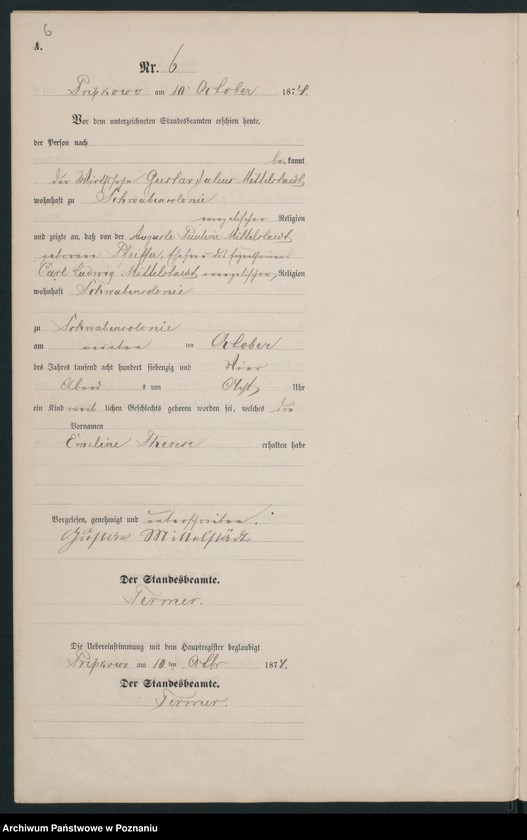 6
A.
Nr. 6
am 10 October 1874.
Vor dem unterzeichneten Standesbeamten erschien heute,
der Person nach
bekannt
der Gustav Julius Mittelstaedt
wohnhaft zu Schwabencolonie
evangelischer Religion
und zeigte an, daß von der Auguste Pauline Mittelstaedt
geborenen Pfeiffer, Ehefrau des
Carl Ludwig Mittelstaedt evangelischer Religion
wohnhaft Schwabencolonie
zu Schwabencolonie
am neunten ten October
des Jahres tausend acht hundert siebenzig und vier
Abend s um Acht Uhr
ein Kind weiblichen Geschlechts geboren worden sei, welches die
Vornamen
Emeline Therese erhalten habe
Vorgelesen, genehmigt und unterschrieben.
Mittelstädt
Der Standesbeamte.
Termer.
Die Uebereinstimmung mit dem Hauptregister beglaubigt
am 10 ten Octbr 1874.
Der Standesbeamte.
Termer.
Archiwum Państwowe w Poznaniu